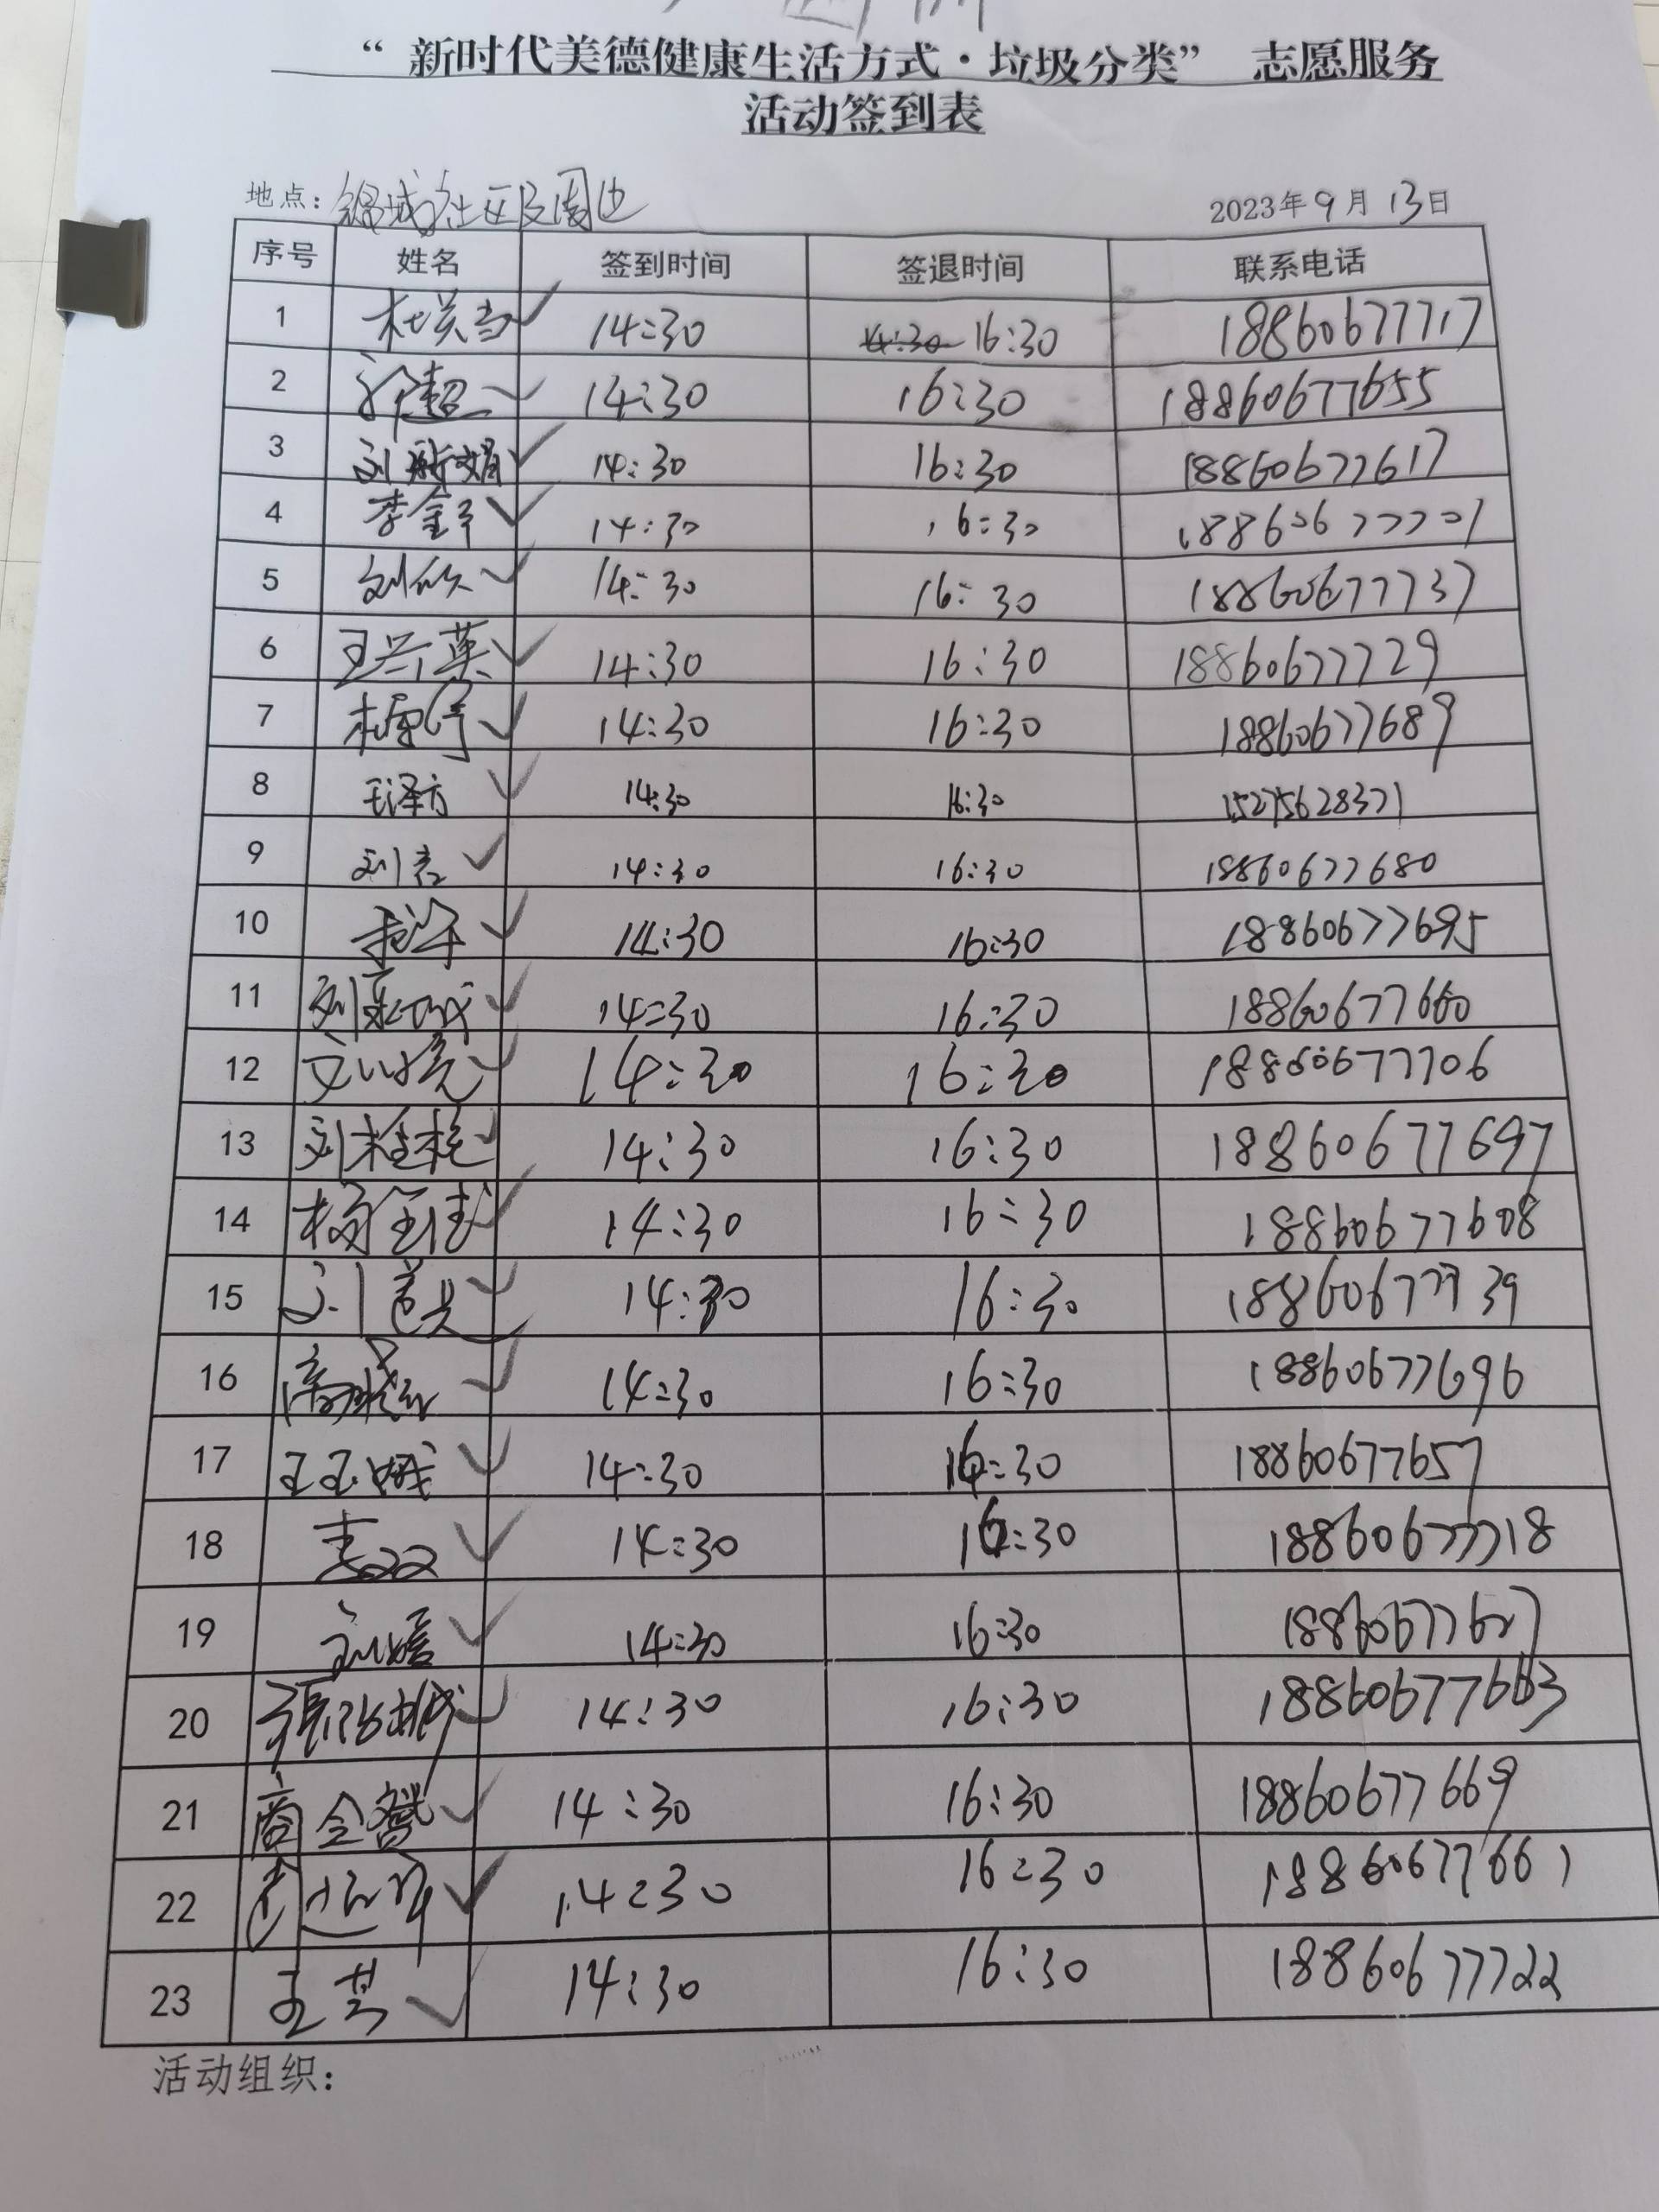 “新时代美德健康生活方式·垃圾分类” 志愿服务
活动签到表
地点：锦城社区及周边 2023年9月13日
序号 姓名 签到时间 签退时间 联系电话
1 14:30 16:30 18860677717
2 许超 14:30 16:30 18860677655
3 14:30 16:30 18860677617
4 14:30 16:30 18860677701
5 刘欣 14:30 16:30 18860677737
6 王兴英 14:30 16:30 18860677729
7 14:30 16:30 18860677689
8 王泽方 14:30 16:30 15275628371
9 14:30 16:30 18860677680
10 14:30 16:30 18860677695
11 14:30 16:30 18860677660
12 14:30 16:30 18860677706
13 刘桂艳 14:30 16:30 18860677697
14 14:30 16:30 18860677608
15 14:30 16:30 18860677739
16 14:30 16:30 18860677696
17 王玉娥 14:30 16:30 18860677657
18 袁双双 14:30 16:30 18860677718
19 14:30 16:30 18860677627
20 14:30 16:30 18860677663
21 商全鸳 14:30 16:30 18860677669
22 14:30 16:30 18860677661
23 王芸 14:30 16:30 18860677722
活动组织：